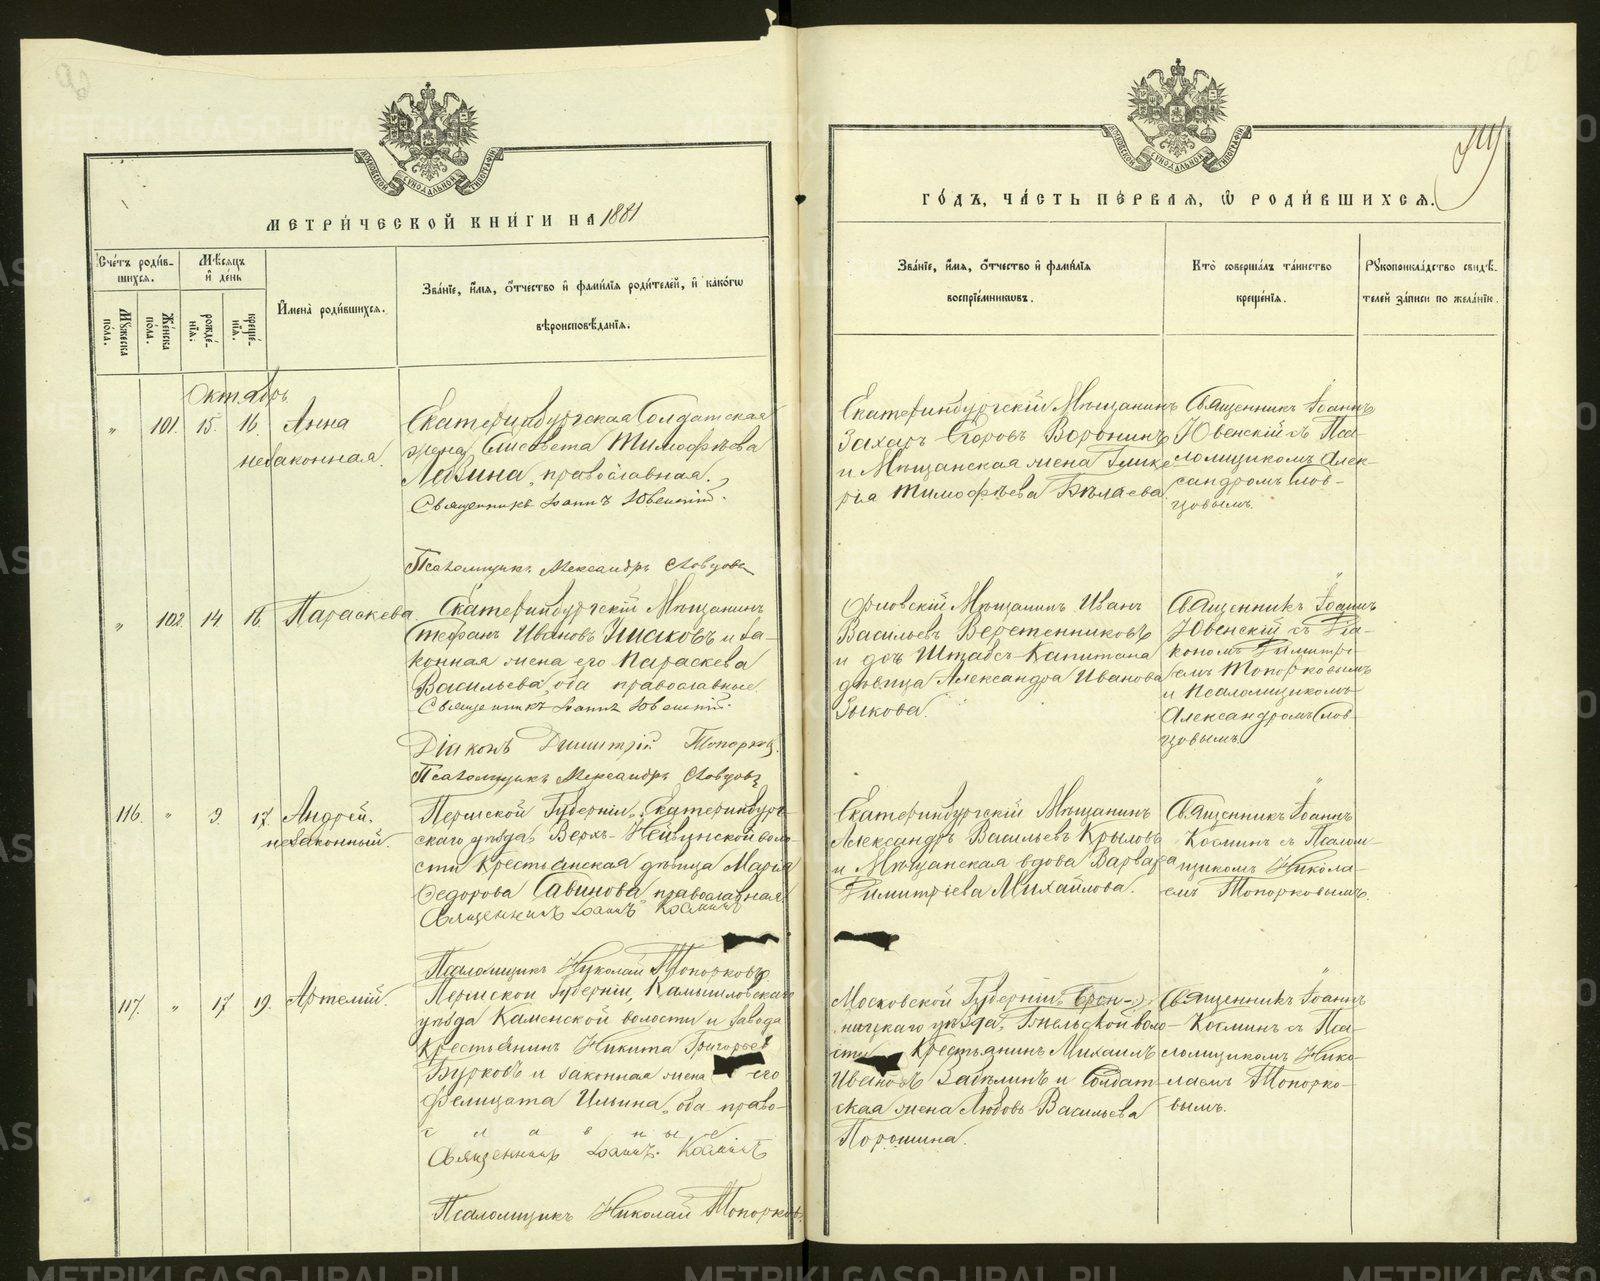 МЕТРИ́ЧЕСКОЙ КНИ́ГИ НА 1881
Сче́тъ роди́в-
шихся.
Мѣ́сяцъ
и҆ де́нь
И҆мена̀ роди́вшихся.
Зва́нїе, и҆́мя, ѻ҆́тчество и҆ фами́лїя роди́телей, и҆ како́гѡ
вѣроисповѣ́данїя.
Мꙋ́жеска
по́ла.
Же́нска
по́ла.
рожде́-
нїя.
креще́-
нїя.
Октябрь
" 101. 15. 16. Анна
незаконная.
Екатеринбургская Солдатская
жена Елисавета Тимофѣева
Лезина, православная.
Священникъ Іоаннъ Ювенскій.
Псаломщикъ Александръ Словцовъ
" 102. 14 18. Параскева
Екатеринбургскій Мѣщанинъ
Стефанъ Ивановъ Ушаковъ и за-
конная жена его Параскева
Васильева, оба православные.
Священникъ Іоаннъ Ювенскій.
Діаконъ Димитрій Топорковъ.
Псаломщикъ Александръ Словцовъ
116. " 9. 17. Андрей.
незаконный.
Пермской Губерніи, Екатеринбург-
скаго уѣзда, Верхъ-Нейвинской воло-
сти Крестьянская дѣвица Марія
Ѳедорова Савинова, православная.
Священникъ Іоаннъ Косминъ
Псаломщикъ Николай Топорковъ
117. " 17 19. Артемій.
Пермской Губерніи, Камышловскаго
уѣзда Каменской волости и завода
Крестьянинъ Никита Григорьев
Бурковъ и законная жена его
Фелицата Ильина, оба право-
славные
Священникъ Іоаннъ Косминъ
Псаломщикъ Николай Топорковъ.
ГО́ДЪ, ЧА́СТЬ ПЕ́РВАЯ, Ѡ҆ РОДИ́ВШИХСЯ.
Зва́нїе, и҆́мя, ѻ҆́тчество и҆ фами́лїя
воспрїе́мникѡвъ.
Кто̀ соверша́лъ та́инство
креще́нїя.
Рꙋкоприкла́дство свидѣ́-
телей за́писи по жела́нїю.
Екатеринбургскій Мѣщанинъ
Захаръ Егоровъ Воронинъ
и Мѣщанская жена Глике-
рія Тимофѣева Бѣлаева
Священникъ Іоаннъ
Ювенскій съ Пса-
ломщикомъ Алек-
сандромъ Слов-
цовымъ.
Орловскій Мѣщанинъ Иванъ
Васильевъ Веретенниковъ
и дочь Штабсъ-Капитана
дѣвица Александра Иванова
Зыкова.
Священникъ Іоаннъ
Ювенскій съ Діа-
кономъ Димитрі-
емъ Топорковымъ
и Псаломщикомъ
Александромъ Слов-
цовымъ.
Екатеринбургскій Мѣщанинъ
Александръ Васильевъ Крыловъ
и Мѣщанская вдова Варвара
Димитріева Михайлова.
Священникъ Іоаннъ
Косминъ съ Псалом-
щикомъ Никола-
емъ Топорковымъ.
Московской Губерніи, Брон-
ницкаго уѣзда, Гжельской воло-
сти Крестьянинъ Михаилъ
Ивановъ Забѣлинъ и Солдат-
ская жена Любовь Васильева
Порошина.
Священникъ Іоаннъ
Косминъ съ Пса-
ломщикомъ Нико-
лаемъ Топорко-
вымъ.
METRIKI.GASO-URAL.RU